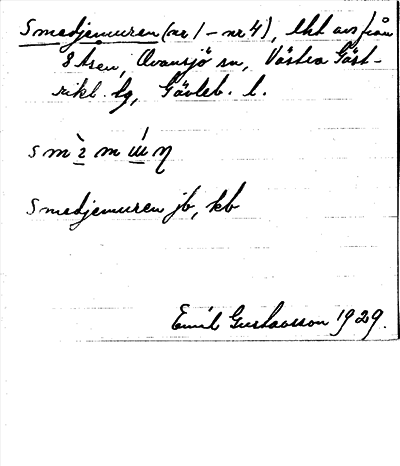 Smedjemuren (nr 1 – nr 4), lht avs från
Åsen, Ovansjö sn, Västra Gäst-
rikl. tg, Gävleb. l.
Smedjemuren jb, kb
Emil Gustavsson 1929.